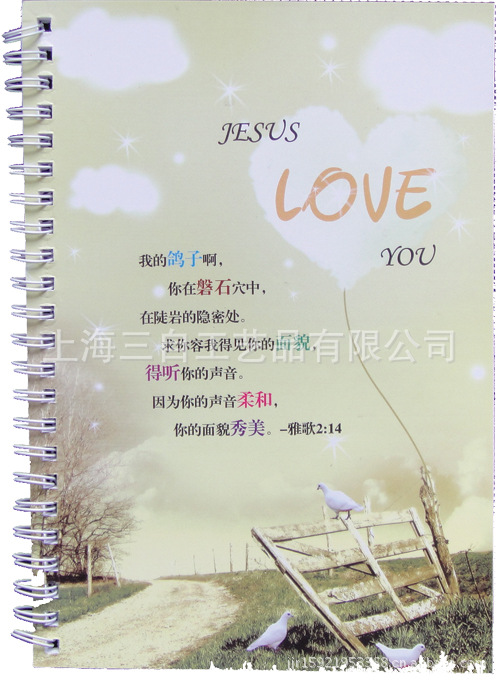 JESUS
LOVE
YOU
我的鸽子啊，
你在磐石穴中，
在陡岩的隐密处。
求你容我得见你的面貌，
得听你的声音。
因为你的声音柔和，
你的面貌秀美。–雅歌2:14
上海三自工艺品有限公司